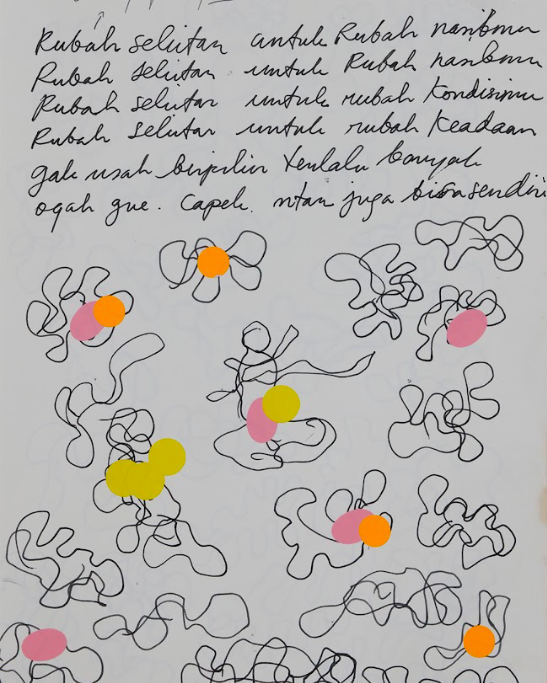 Rubah selutan untuk Rubah nasibmu
Rubah selutan untuk Rubah nasibmu
Rubah selutar untuk rubah kondisimu
Rubah selutar untuk rubah keadaan
gak usah berpikir terlalu banyak
ogah gue. Capek. ntar juga bisa sendiri